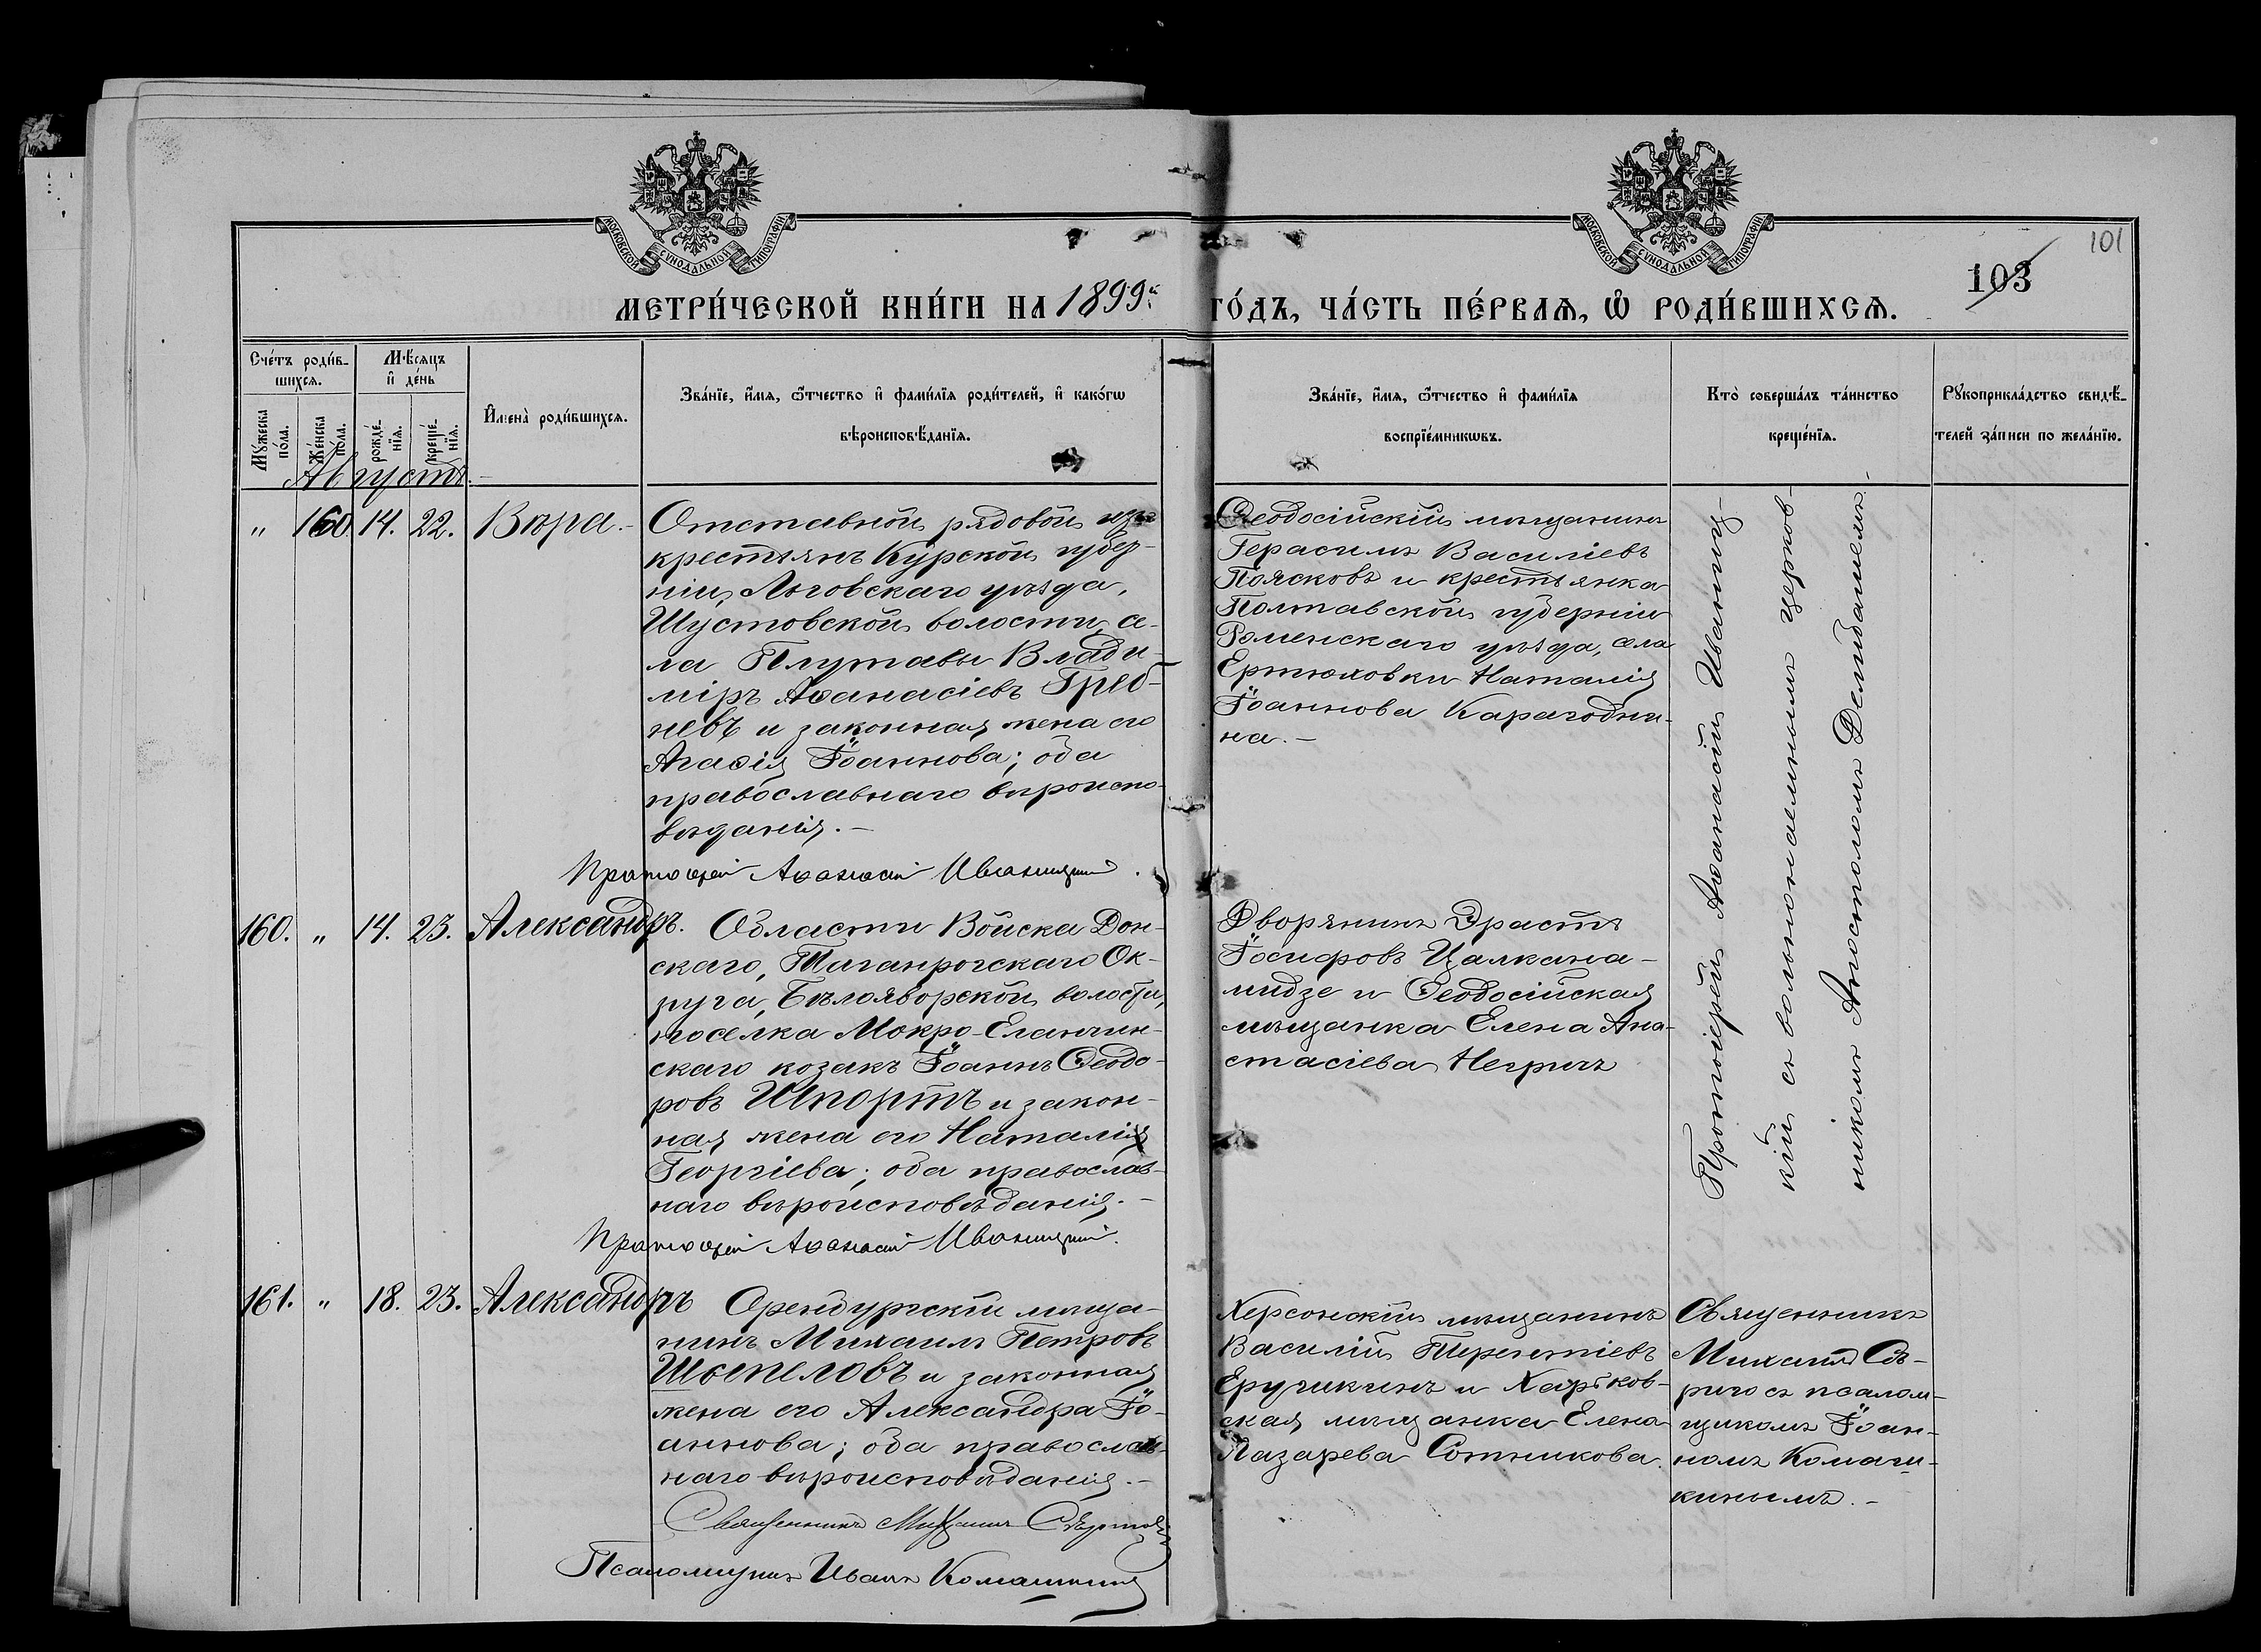 МОСКОВСКОЙ СѴНОДАЛЬНОЙ ТИПОГРАФІИ
МОСКОВСКОЙ СѴНОДАЛЬНОЙ ТИПОГРАФІИ
101
103
МЕТРИ́ЧЕСКОЙ КНИ́ГИ НА 1899й ГО́ДЪ, ЧА́СТЬ ПЕ́РВАѦ, Ѡ҆ РОДИ́ВШИХСѦ.
Сче́тъ роди́в-
шихсѧ.
Мѣ́сѧцъ
и҆ де́нь
Мꙋ́жеска
по́ла.
Же́нска
по́ла.
рожде́-
нїѧ.
креще́-
нїѧ.
И҆мена̀ роди́вшихсѧ.
Зва́нїе, и҆́мѧ, ѻ҆́тчество и҆ фами́лїѧ роди́телей, и҆ како́гѡ
вѣроисповѣ́данїѧ.
Зва́нїе, и҆́мѧ, ѻ҆́тчество и҆ фами́лїѧ
воспрїе́мникѡвъ.
Кто̀ соверша́лъ та́инство
креще́нїѧ.
Рꙋкоприкла́дство свидѣ́-
телей за́писи по жела́нїю.
Августъ.
" 160. 14. 22. Вѣра.
Отставной рядовой изъ
крестьянъ Курской губер-
ніи, Льговскаго уѣзда,
Шустовской волости, се-
ла Плутавы Влади-
міръ Аѳанасіевъ Греб-
невъ и законная жена его
Агаѳія Іоаннова; оба
православнаго вѣроиспо-
вѣданія.
Протоіерей Аѳанасій Иваницкій
Ѳеодосійскій мѣщанинъ
Герасимъ Василіевъ
Поясковъ и крестьянка
Полтавской губерніи
Роменскаго уѣзда, села
Ертюховки Наталія
Іоаннова Карагодни-
на.
Протоіерей Аѳанасій Иваниц-
кій съ вольнонаемнымъ церков-
никомъ Апостоломъ Делибашемъ.
160. " 14. 23. Александръ.
Области Войска Дон-
скаго, Таганрогскаго Ок-
руга, Бѣлояворской волости,
поселка Мокро-Еланчин-
скаго козакъ Іоаннъ Ѳеодо-
ровъ Шпортъ и закон-
ная жена его Наталія
Георгіева; оба православ-
наго вѣроисповѣданія.
Протоіерей Аѳанасій Иваницкій.
Дворянинъ Эрастъ
Іосифовъ Цалкана-
мидзе и Ѳеодосійская
мѣщанка Елена Ана-
стасіева Негричъ
161. " 18. 23. Александръ
Оренбургскій мѣща-
нинъ Михаилъ Петровъ
Шепеловъ и законная
жена его Александра Іо-
аннова; оба православ-
наго вѣроисповѣданія.
Священникъ Михаилъ
Псаломщикъ Иванъ Комашкинъ
Херсонскій мѣщанинъ
Василій Терентіевъ
Еручикинъ и Харьков-
ская мѣщанка Елена
Лазарева Сотникова.
Священникъ
Михаилъ
съ псалом-
щикомъ Іоан-
номъ Комаш-
кинымъ.